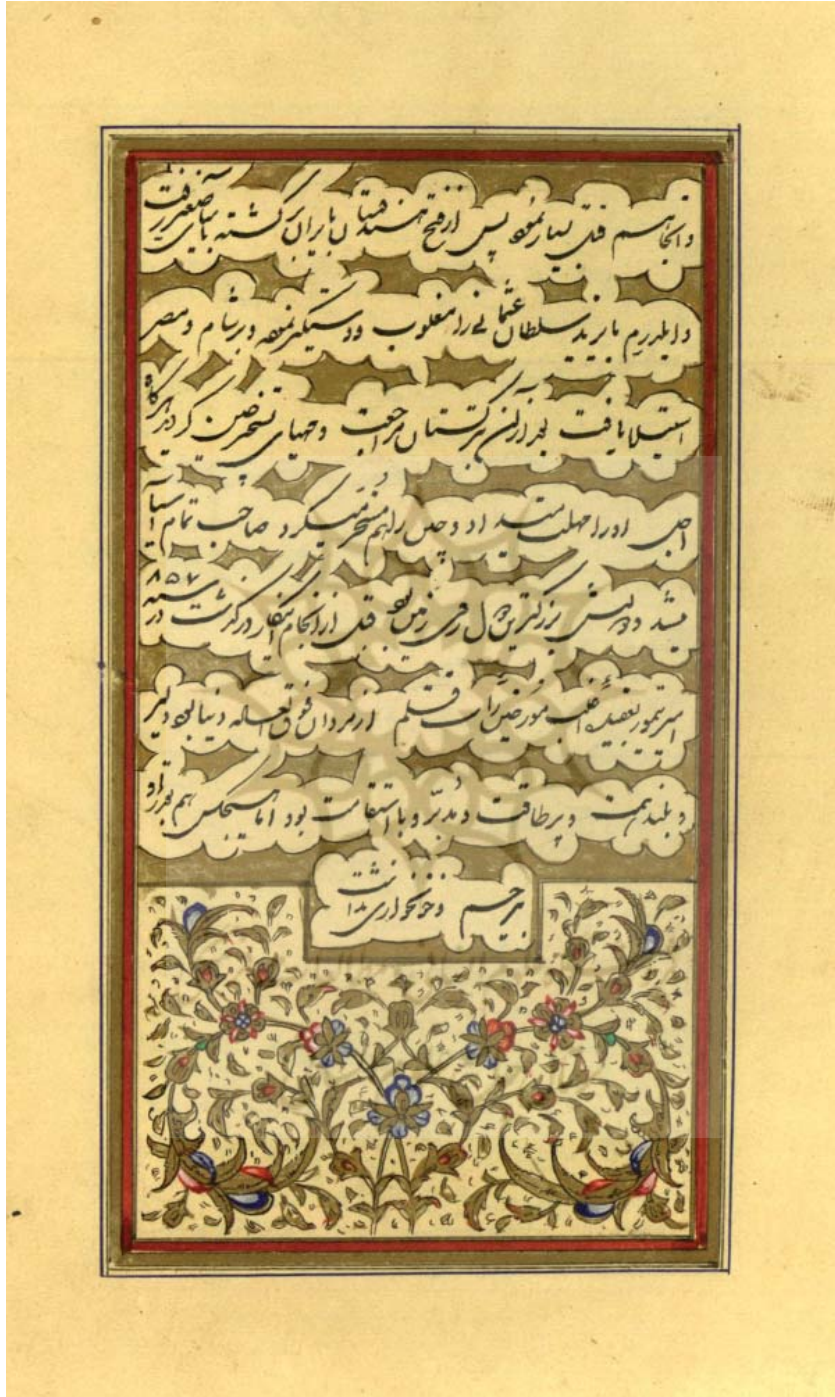 و آنجا هم قتل بسیار نموده پس از فتح هندوستان بایران برگشته بآسیای صغیر رفت
و ایلدرم بایزید سلطان عثمانی را مغلوب و دستگیر نموده و بر شام و مصر
استیلا یافت بعد از آن بترکستان مراجعت و مهیای تسخیر چین گردید هرگاه
اجل او را مهلت میداد و چین را هم مسخر میکرد صاحب تمام آسیا
میشد و دولتش بزرگترین دول روی زمین بود قبل از انجام اینکار درگذشت در سنه ۸۵۷
امیر تیمور بعقیده اغلب مورخین از مردان فوق العاده دنیا بوده دلیر
و بلند همت و پر طاقت و مدبّر و با استقامت بود اما هیچکس هم بقدر او
بیرحم و خونخواری نداشت